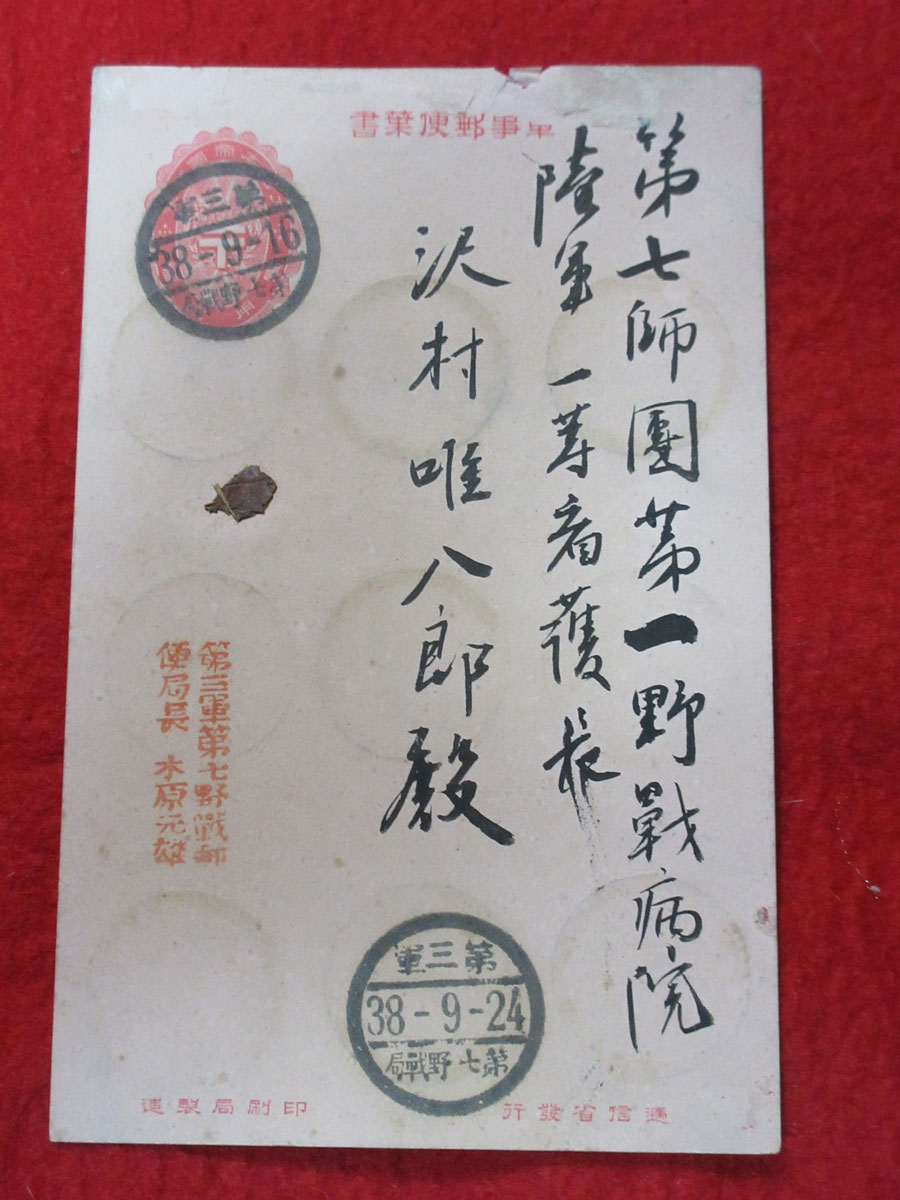 軍事郵便葉書
第七師團第一野戰病院
陸軍一等看護長
沢村唯八郎殿
第三軍
38-9-16
第七野戰局
第三軍第七野戰郵
便局長 木原元雄
第三軍
38-9-24
第七野戰局
逓信省發行
印刷局製造